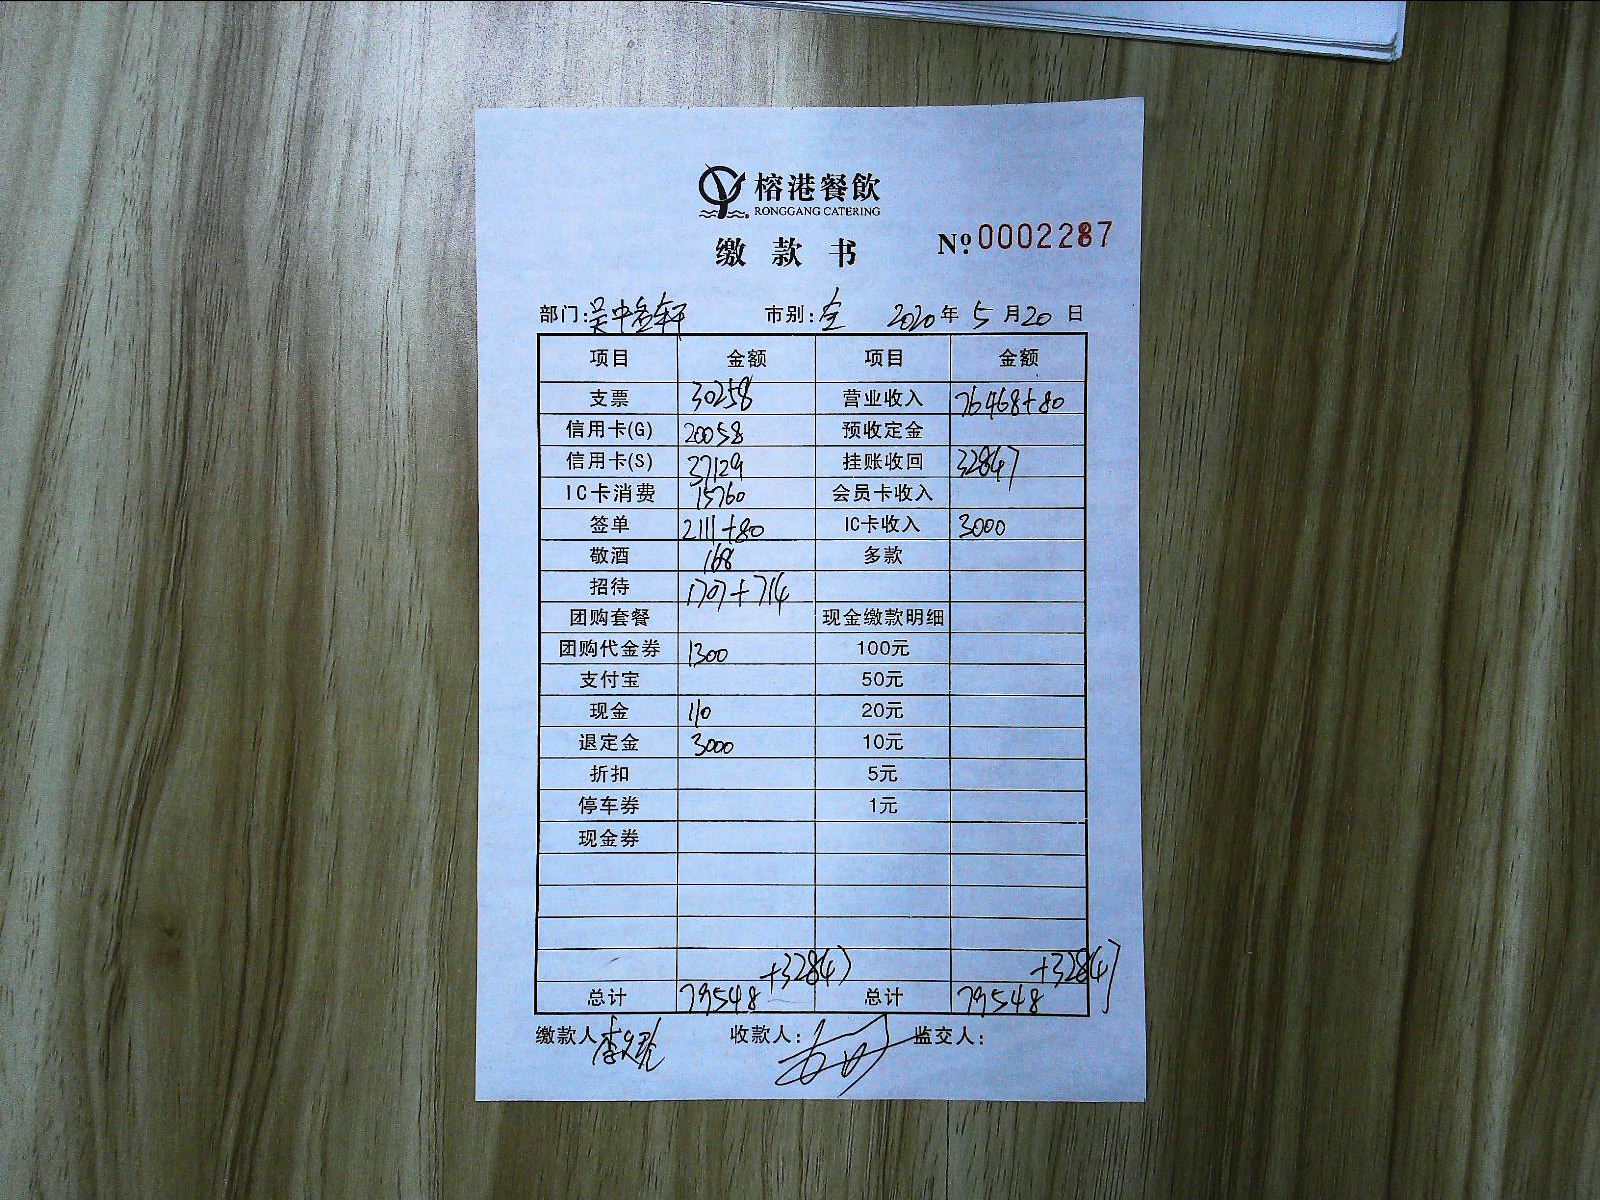 榕港餐飲
RONGGANG CATERING
缴款书
Nº 0002287
部门:吴中金轩 市别:全 2020年5月20日
项目 金额 项目 金额
支票 30258 营业收入 76468+80
信用卡(G) 20058 预收定金
信用卡(S) 37129 挂账收回 32847
IC卡消费 15760 会员卡收入
签单 2111+80 IC卡收入 3000
敬酒 168 多款
招待 1707+714
团购套餐 现金缴款明细
团购代金券 1300 100元
支付宝 50元
现金 110 20元
退定金 3000 10元
折扣 5元
停车券 1元
现金券
+32847 +32847
总计 79548 总计 79548
缴款人 李 收款人: 监交人: